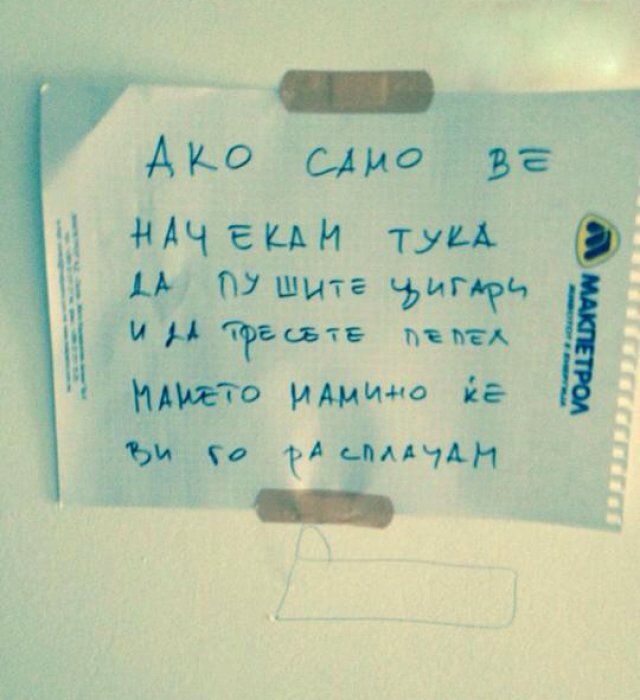 АКО САМО ВЕ
НАЧЕКАМ ТУКА
ДА ПУШИТЕ ЦИГАРИ
И ДА ТРЕСЕТЕ ПЕПЕЛ
МАЙЕТО МАМИНО ЌЕ
ВИ ГО РАСПЛАЧАМ
МАКПЕТРОЛ